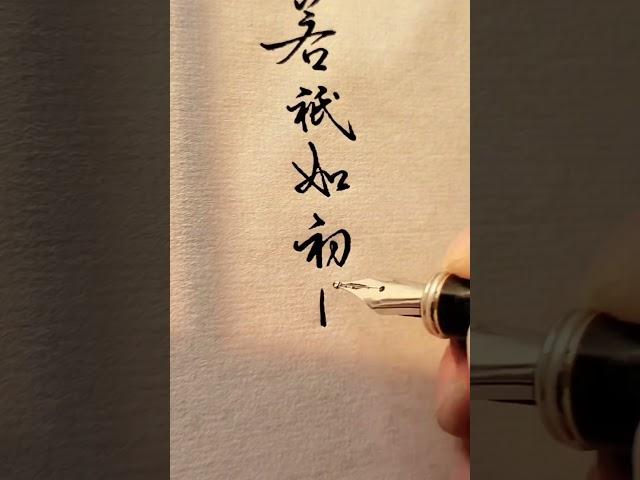 若祇如初